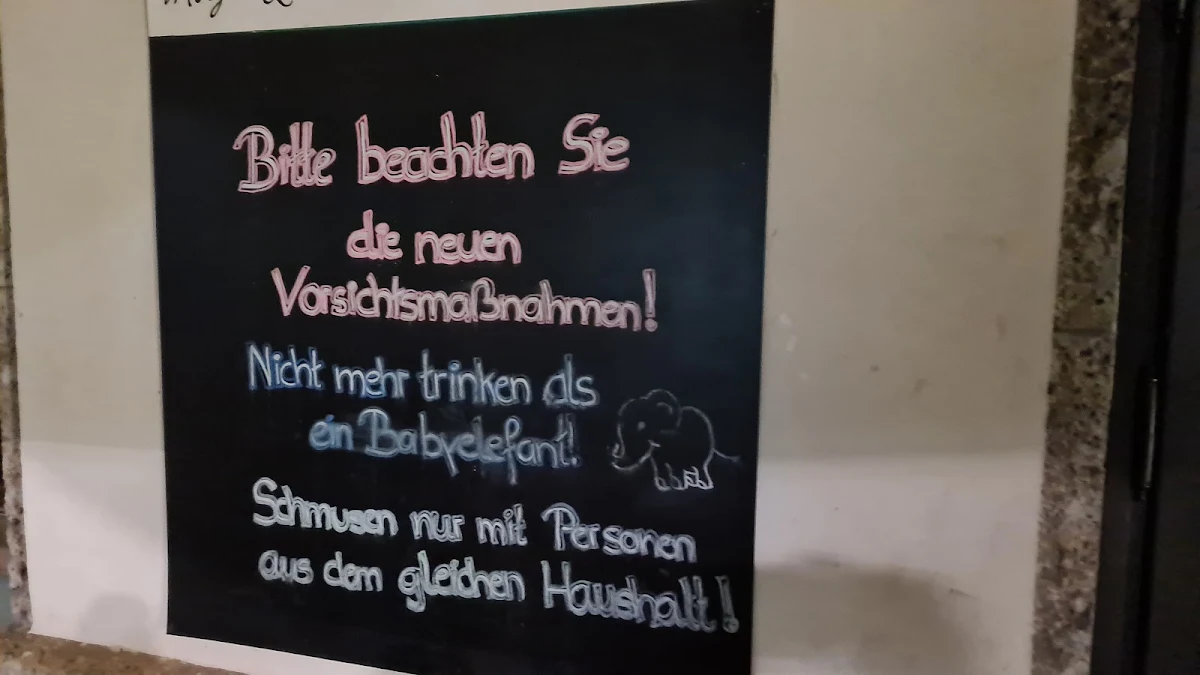 Bitte beachten Sie
die neuen
Vorsichtsmaßnahmen!
Nicht mehr trinken als
ein Babyelefant!
Schmusen nur mit Personen
aus dem gleichen Haushalt!